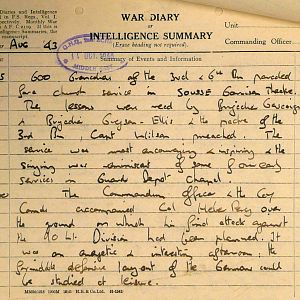 Diaries and Intelligence
in F.S. Regs., Vol. I
respectively. Monthly War
A.F. C.2119. If this
Intelligence Summaries, the
WAR DIARY
or
INTELLIGENCE SUMMARY
(Erase heading not required).
Unit
Commanding Officer
Aug 43
MIDDLE EAST
Summary of Events and Information
600 Grenadiers of the 3rd & 6th Bn paraded
for a church service in SOUSSE Garrison Theatre.
The lessons were read by Brigadier Gascoigne
& Brigadier Greyson-Ellis & the padre of the
3rd Bn Capt Wilson preached. The
service was most encouraging & inspiring & the
singing was reminiscent of some
services in Guards Depot Chapel.
The Commanding Officer & the Coy
Comds accompanied Col Heber Percy over
the ground on which his final attack against
the 90 Lt. Division had been planned. It
was an energetic & interesting afternoon; the
formidable defensive layout of the Germans could
be studied at leisure.